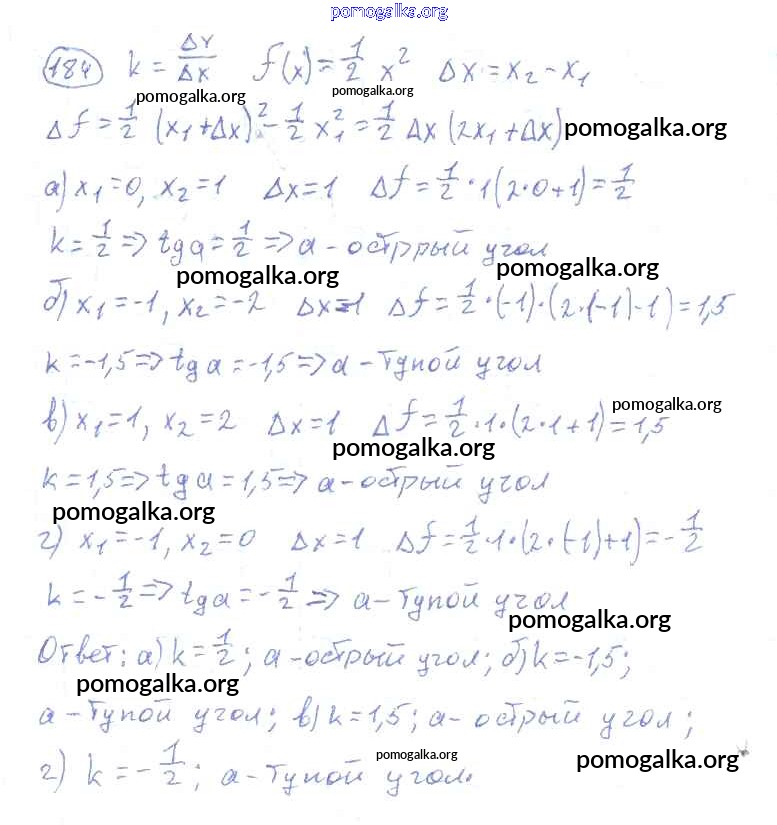 pomogalka.org
184 k = ΔY/ΔX f(x) = 1/2 x² Δx = x₂ - x₁
pomogalka.org pomogalka.org
Δf = 1/2 (x₁ + Δx)² - 1/2 x₁² = 1/2 Δx (2x₁ + Δx) pomogalka.org
а) x₁ = 0, x₂ = 1 Δx = 1 Δf = 1/2 · 1(2 · 0 + 1) = 1/2
k = 1/2 => tg a = 1/2 => a - остррый угол
pomogalka.org pomogalka.org
б) x₁ = -1, x₂ = -2 Δx = -1 Δf = 1/2 · (-1) · (2 · (-1) - 1) = 1,5
k = -1,5 => tg a = -1,5 => a - тупой угол
в) x₁ = 1, x₂ = 2 Δx = 1 Δf = 1/2 · 1 · (2 · 1 + 1) = 1,5 pomogalka.org
pomogalka.org
k = 1,5 => tg a = 1,5 => a - острый угол
pomogalka.org
г) x₁ = -1, x₂ = 0 Δx = 1 Δf = 1/2 · 1 · (2 · (-1) + 1) = - 1/2
k = - 1/2 => tg a = - 1/2 => a - тупой угол
pomogalka.org
Ответ: а) k = 1/2; a - острый угол; б) k = -1,5;
pomogalka.org
a - тупой угол; в) k = 1,5; a - острый угол;
pomogalka.org pomogalka.org
г) k = - 1/2; a - тупой угол.